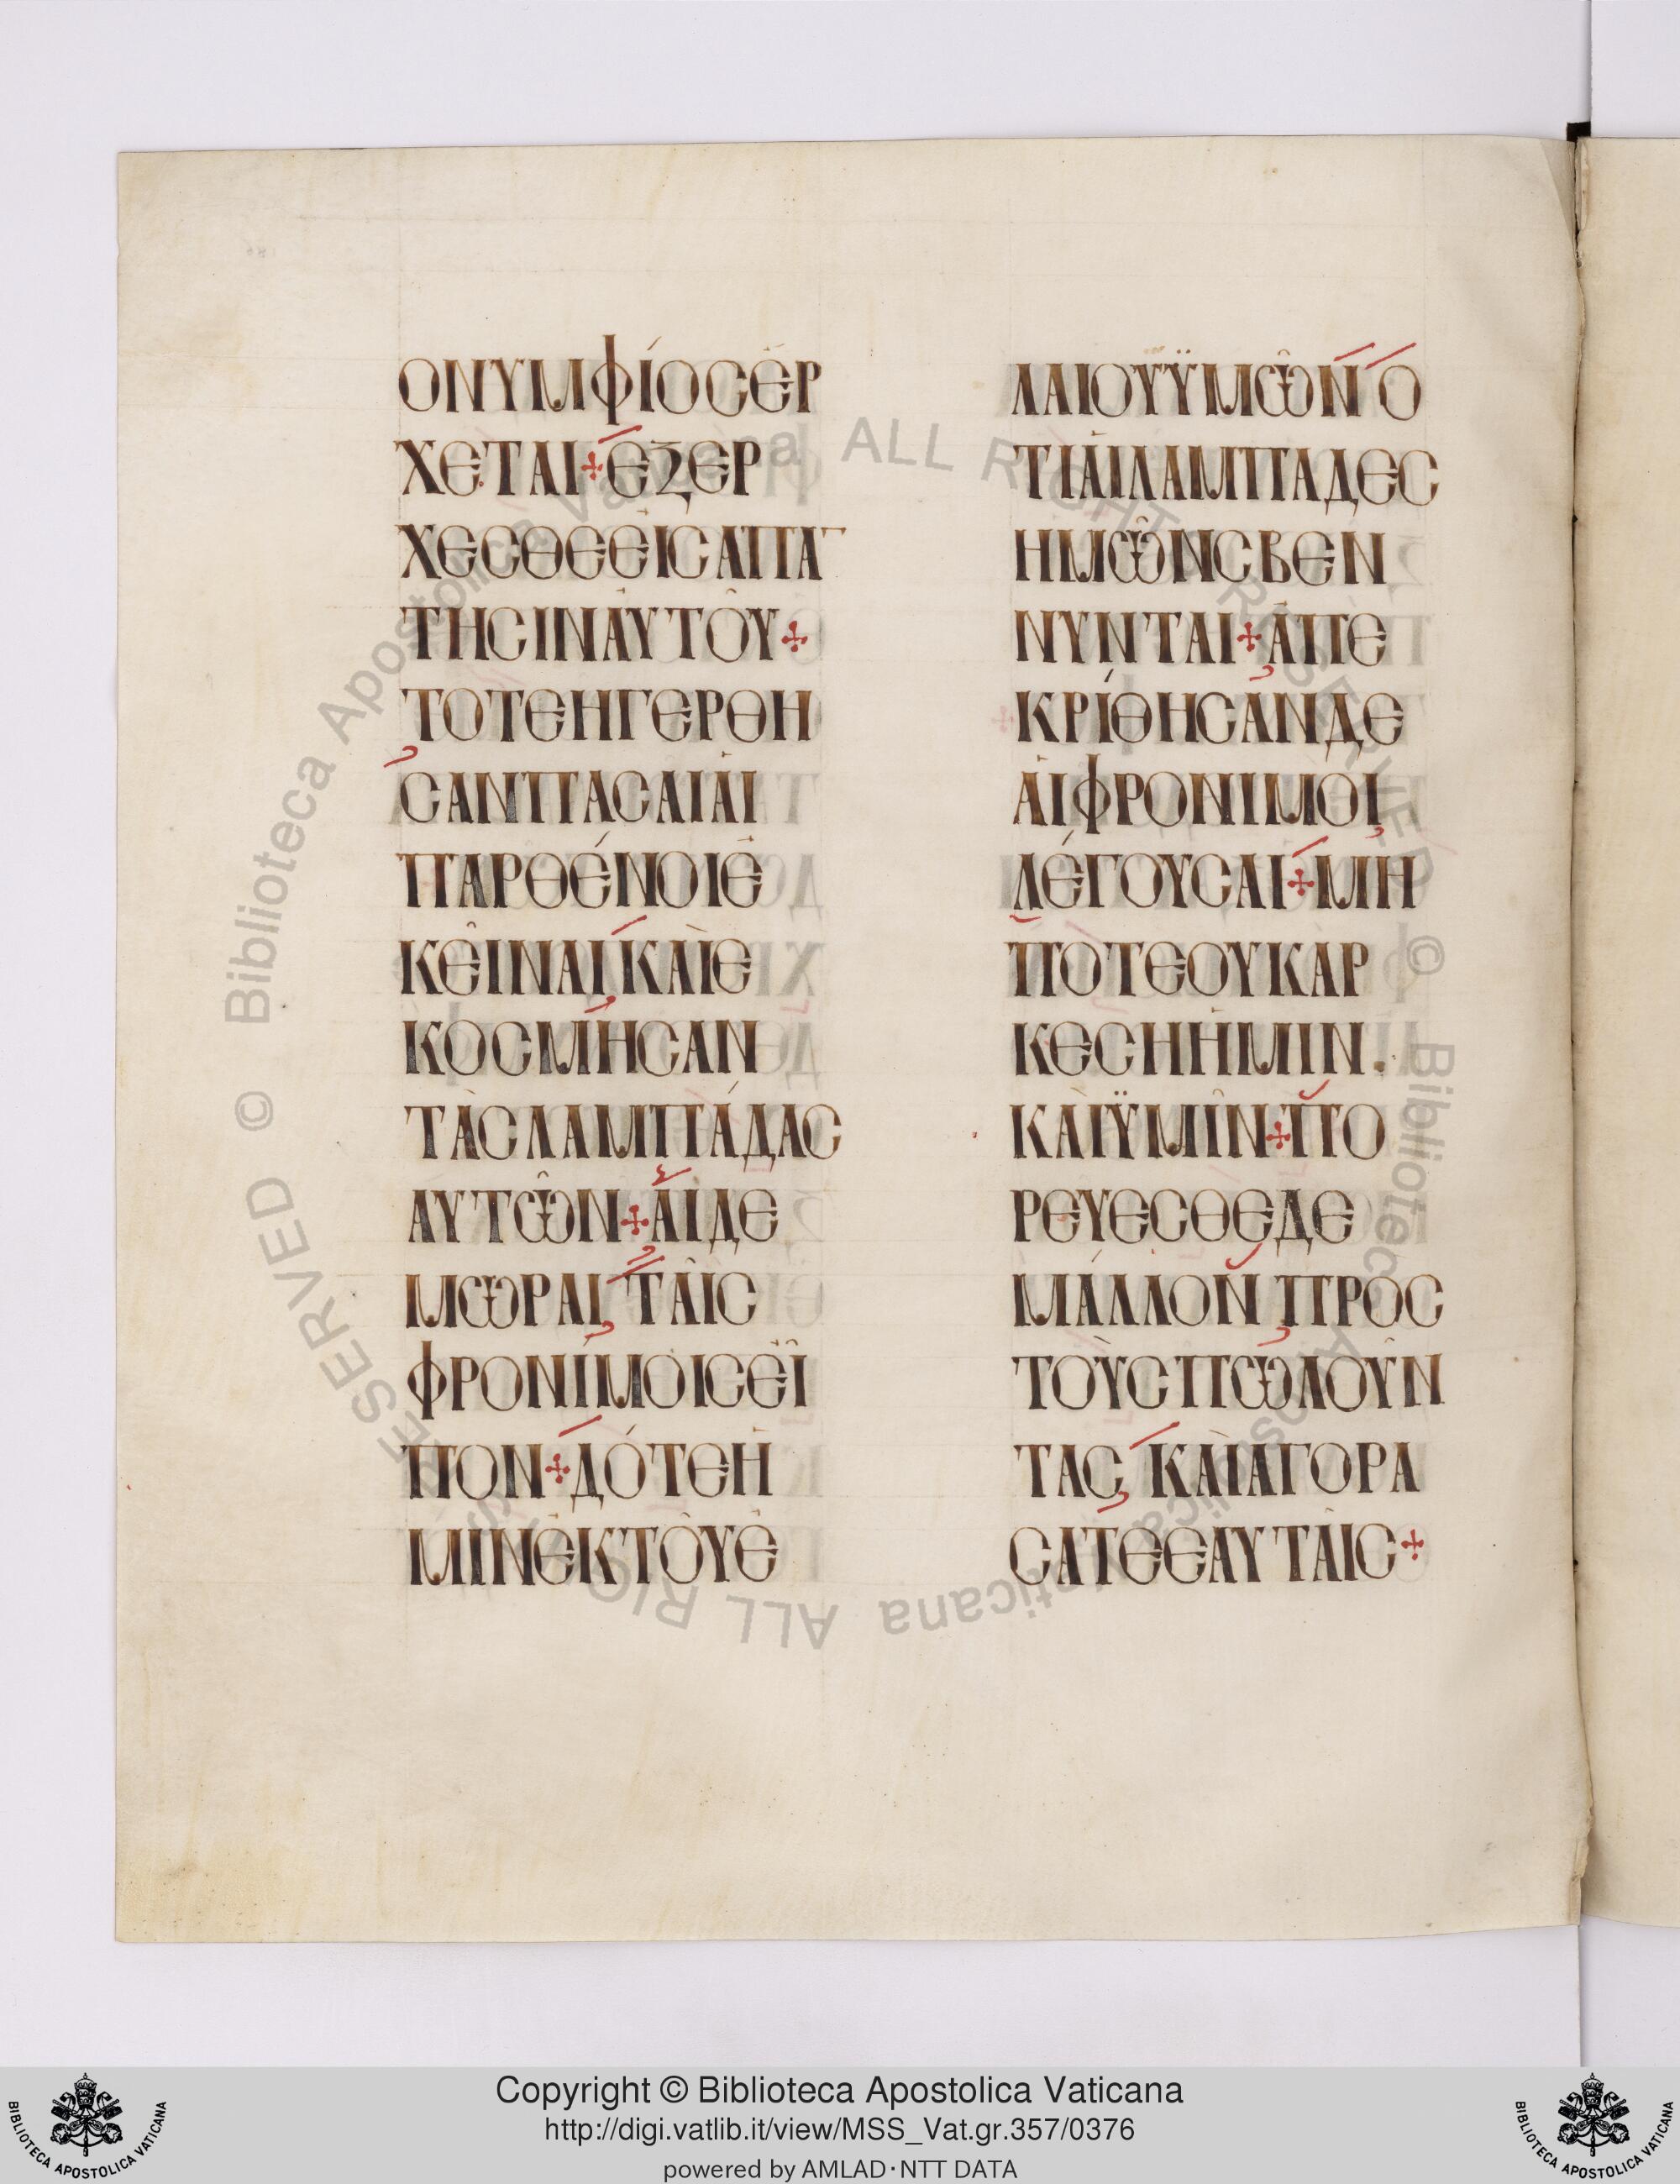 ΟΝΥΜΦΊΟΣἘΡ
ΧΕΤΑΙ + ἘΞΕΡ
ΧΕΣΘΕΕἸΣΑΠΑ
ΤΗΣΙΝΑΥΤΟΥ +
ΤΟΤΕΗΓΕΡΘΗ
ΣΑΝΠΑΣΑΙΑΙ
ΠΑΡΘΈΝΟΙΕ
ΚΕΙΝΑΙ ΚΑῚΕ
ΚΟΣΜΗΣΑΝ
ΤᾺΣΛΑΜΠΆΔΑΣ
ΑΥΤΩ͂Ν + ΑΙΔΕ
ΜΩΡΑΙ ΤΑΙΣ
ΦΡΟΝΊΜΟΙΣΕΙ
ΠΟΝ + ΔΌΤΕΗ
ΜΙΝΕΚΤΟΥΕ
ΛΑΙΟΥΫΜΩ͂Ν Ο
ΤΙΑΙΛΑΜΠΑΔΕΣ
ΗΜΩ͂ΝΣΒΕΝ
ΝΥΝΤΑΙ + ΑΠΕ
ΚΡΊΘΗΣΑΝΔΕ
ΑΙΦΡΟΝΙΜΟΙ
ΛΈΓΟΥΣΑΙ + ΜΗ
ΠΟΤΕΟΥΚΑΡ
ΚΕΣΗΗΜΙΝ.
ΚΑῚΫΜΙΝ + ΠΟ
ΡΕΥΕΣΘΕΔΕ
ΜΆΛΛΟΝ ΠΡΟΣ
ΤΟῪΣΠΩΛΟΥΝ
ΤΑΣ ΚΑῚΑΓΟΡΑ
ΣΑΤΕΕΑΥΤΑΙΣ +
© Biblioteca Apostolica Vaticana ALL RIGHTS RESERVED
Copyright © Biblioteca Apostolica Vaticana
http://digi.vatlib.it/view/MSS_Vat.gr.357/0376
powered by AMLAD·NTT DATA
BIBLIOTECA APOSTOLICA VATICANA
BIBLIOTECA APOSTOLICA VATICANA